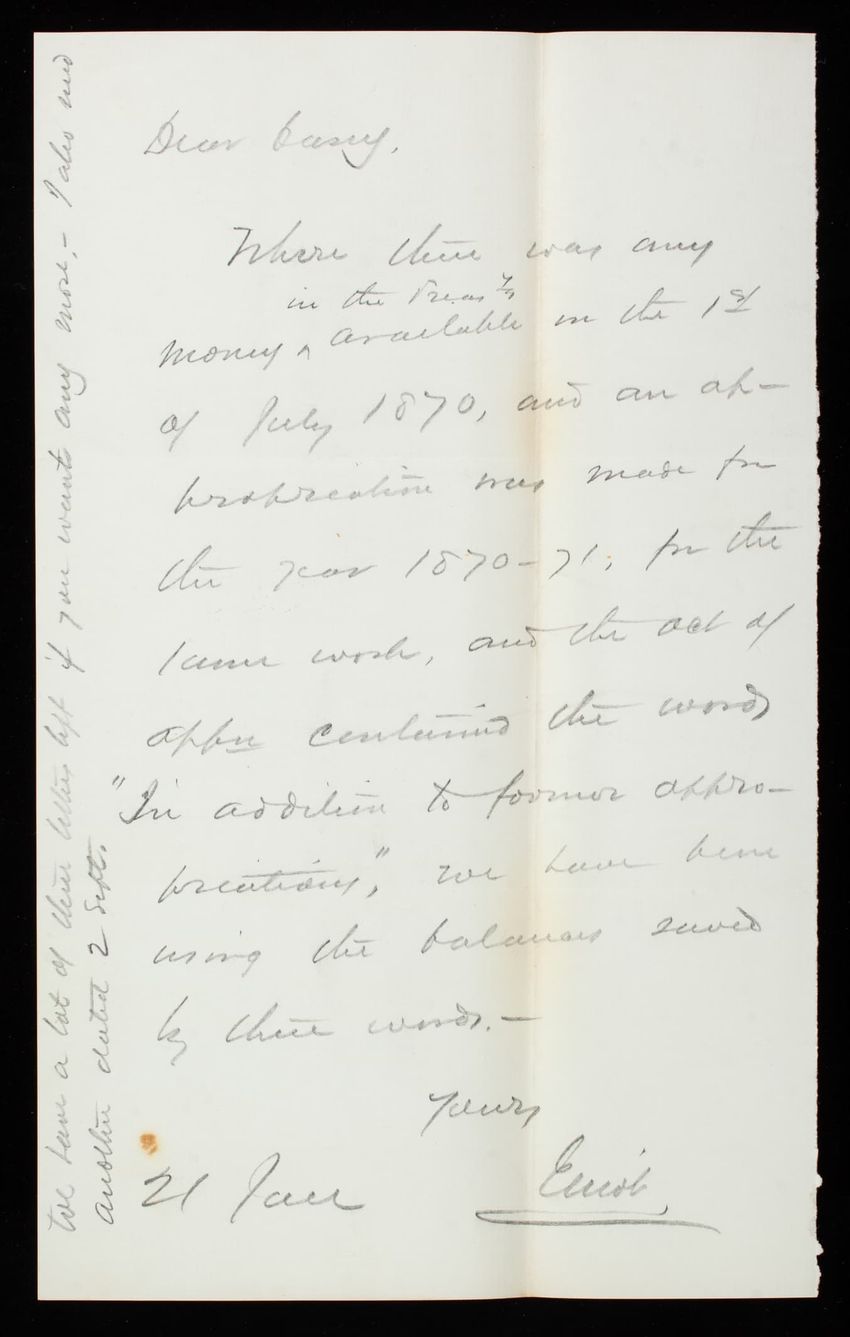 Dear Casey,
Where there was any
in the Treasy
money ^ available on the 1st
of July 1870, and an ap-
propriation was made for
the year 1870-71, for the
same work, and the act of
appn contained the words
"In addition to former appro-
priations", we have been
using the balances saved
by these words.—
Yours
21 Jan
We have a lot of these letters left if you want any more,- I also send
another dated 2 Sept.